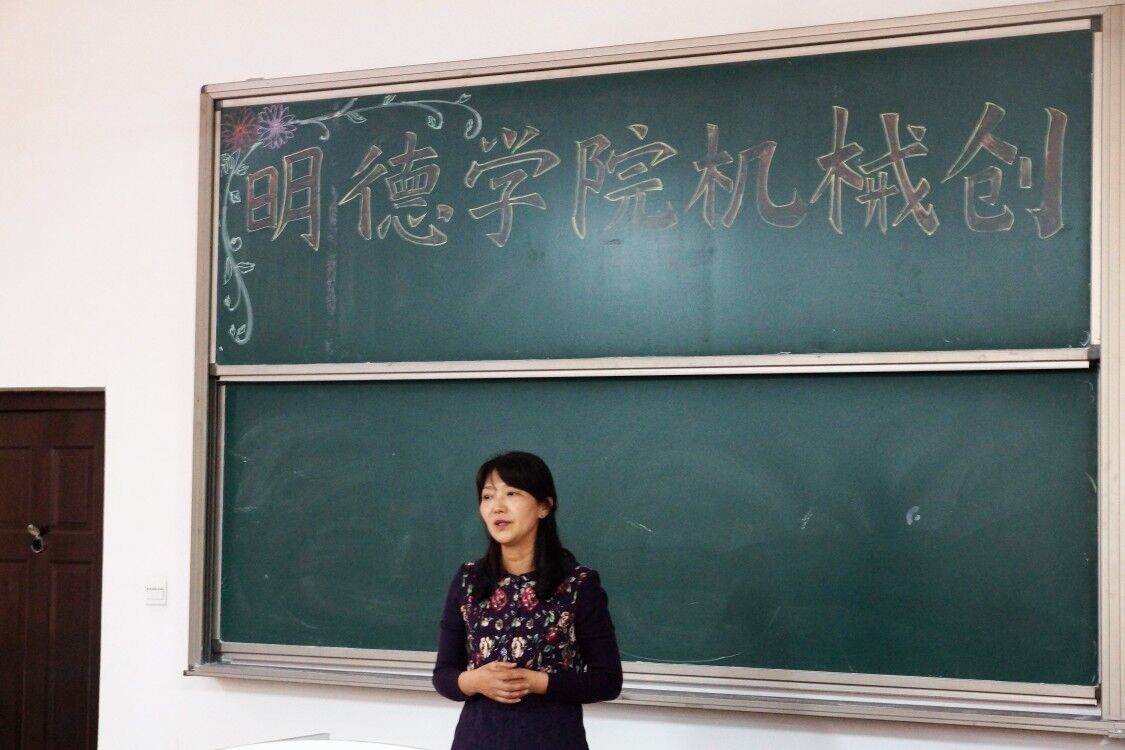 明德学院机械创